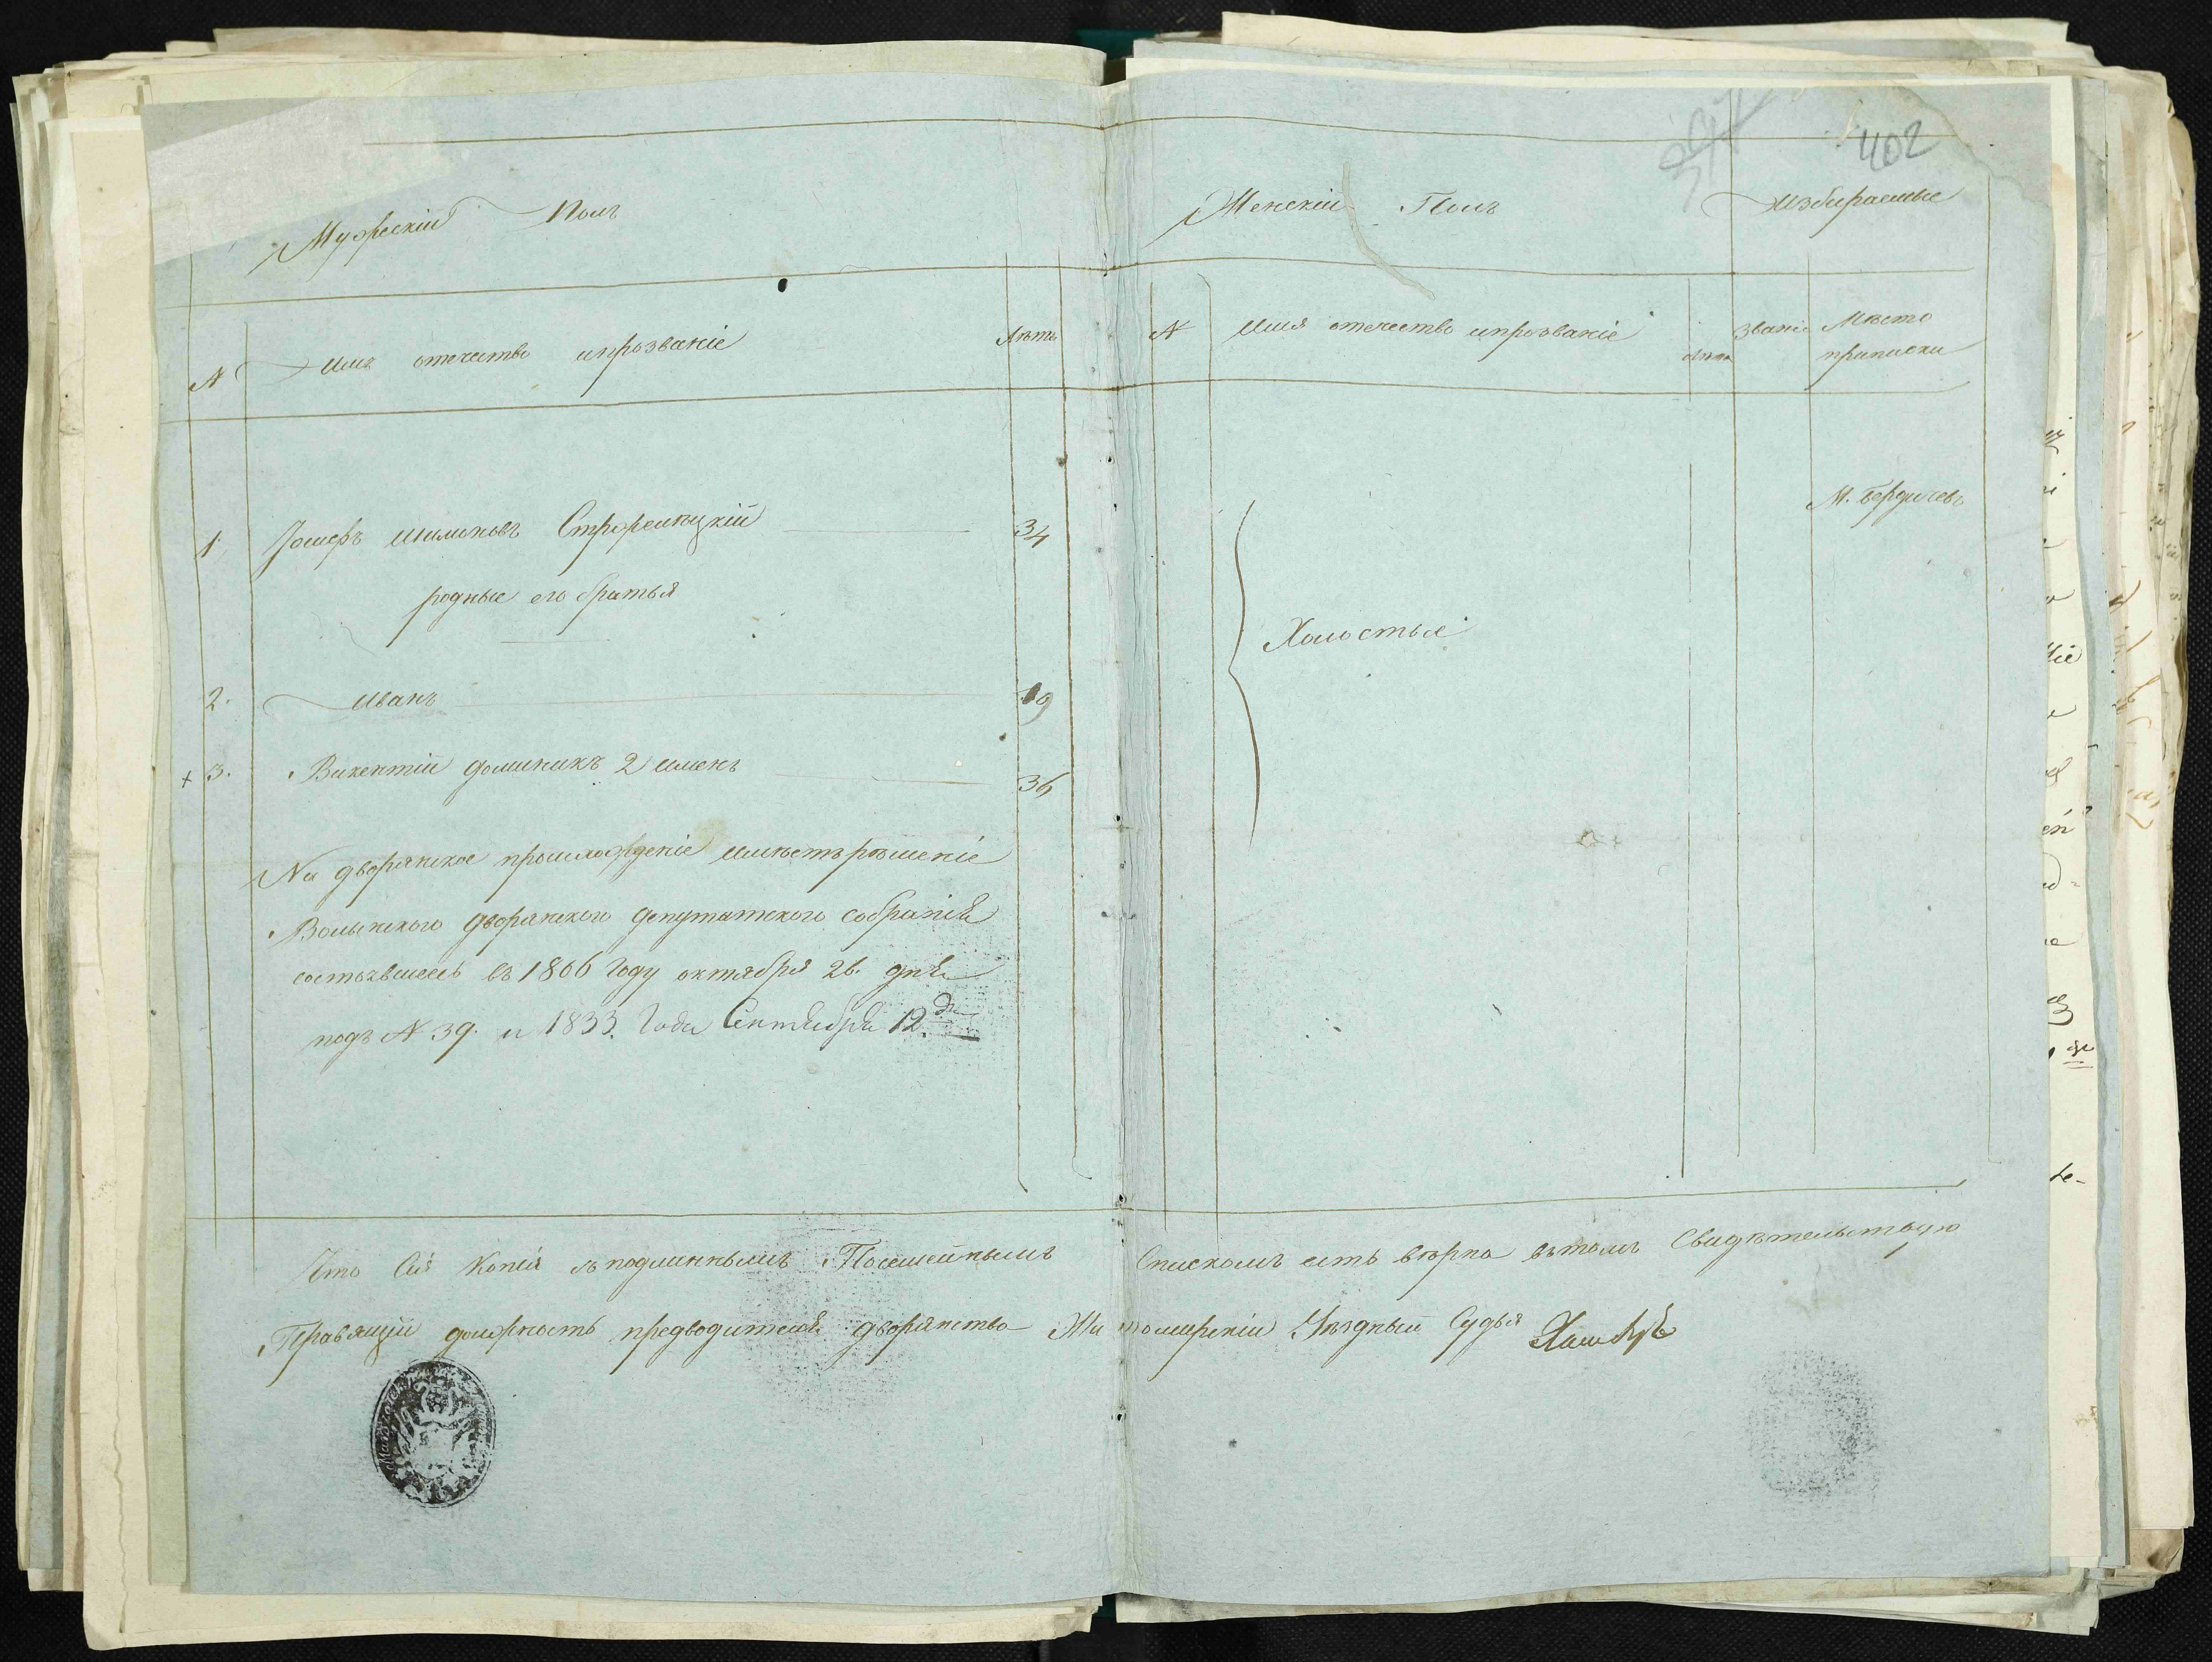 402
Мужескій Полъ
Женскій Полъ
Избираемые
N
Имя отечество ипрозваніе
Лѣта
N
Имя отечество ипрозваніе
Лѣта
Званіе
Мѣсто
приписки
1. Іосифъ Шимоновъ Стржемецкій 34
М. Бердичевъ
родные его братья
Холостые
2. Иванъ 19
+ 3. Викентій Доминикъ 2 именъ 36
На дворянское происхожденіе имѣетъ рѣшеніе
Волынского дворянского депутатского собранія
состоявшееся въ 1806 году октября 26. дня
подъ N 39. и 1833. Года Сентября 12 дня
Что Сія Копія съ подлиннымъ Посемейнымъ Спискомъ есть вѣрна въ томъ Свидѣтельствую
Правящій должность предводителя дворянства Житомирскій Уѣздный Судья